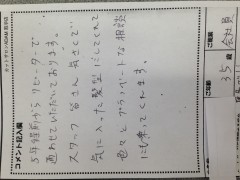 コメント記入欄
5年程前からリピーターで
通わせていただいております。
スタッフ皆さん気さくで
気に入った髪型にしてくれて
色々とプライベートな相談
にも乗ってくれます。
ご年齢 35 歳
ご職業 会社員